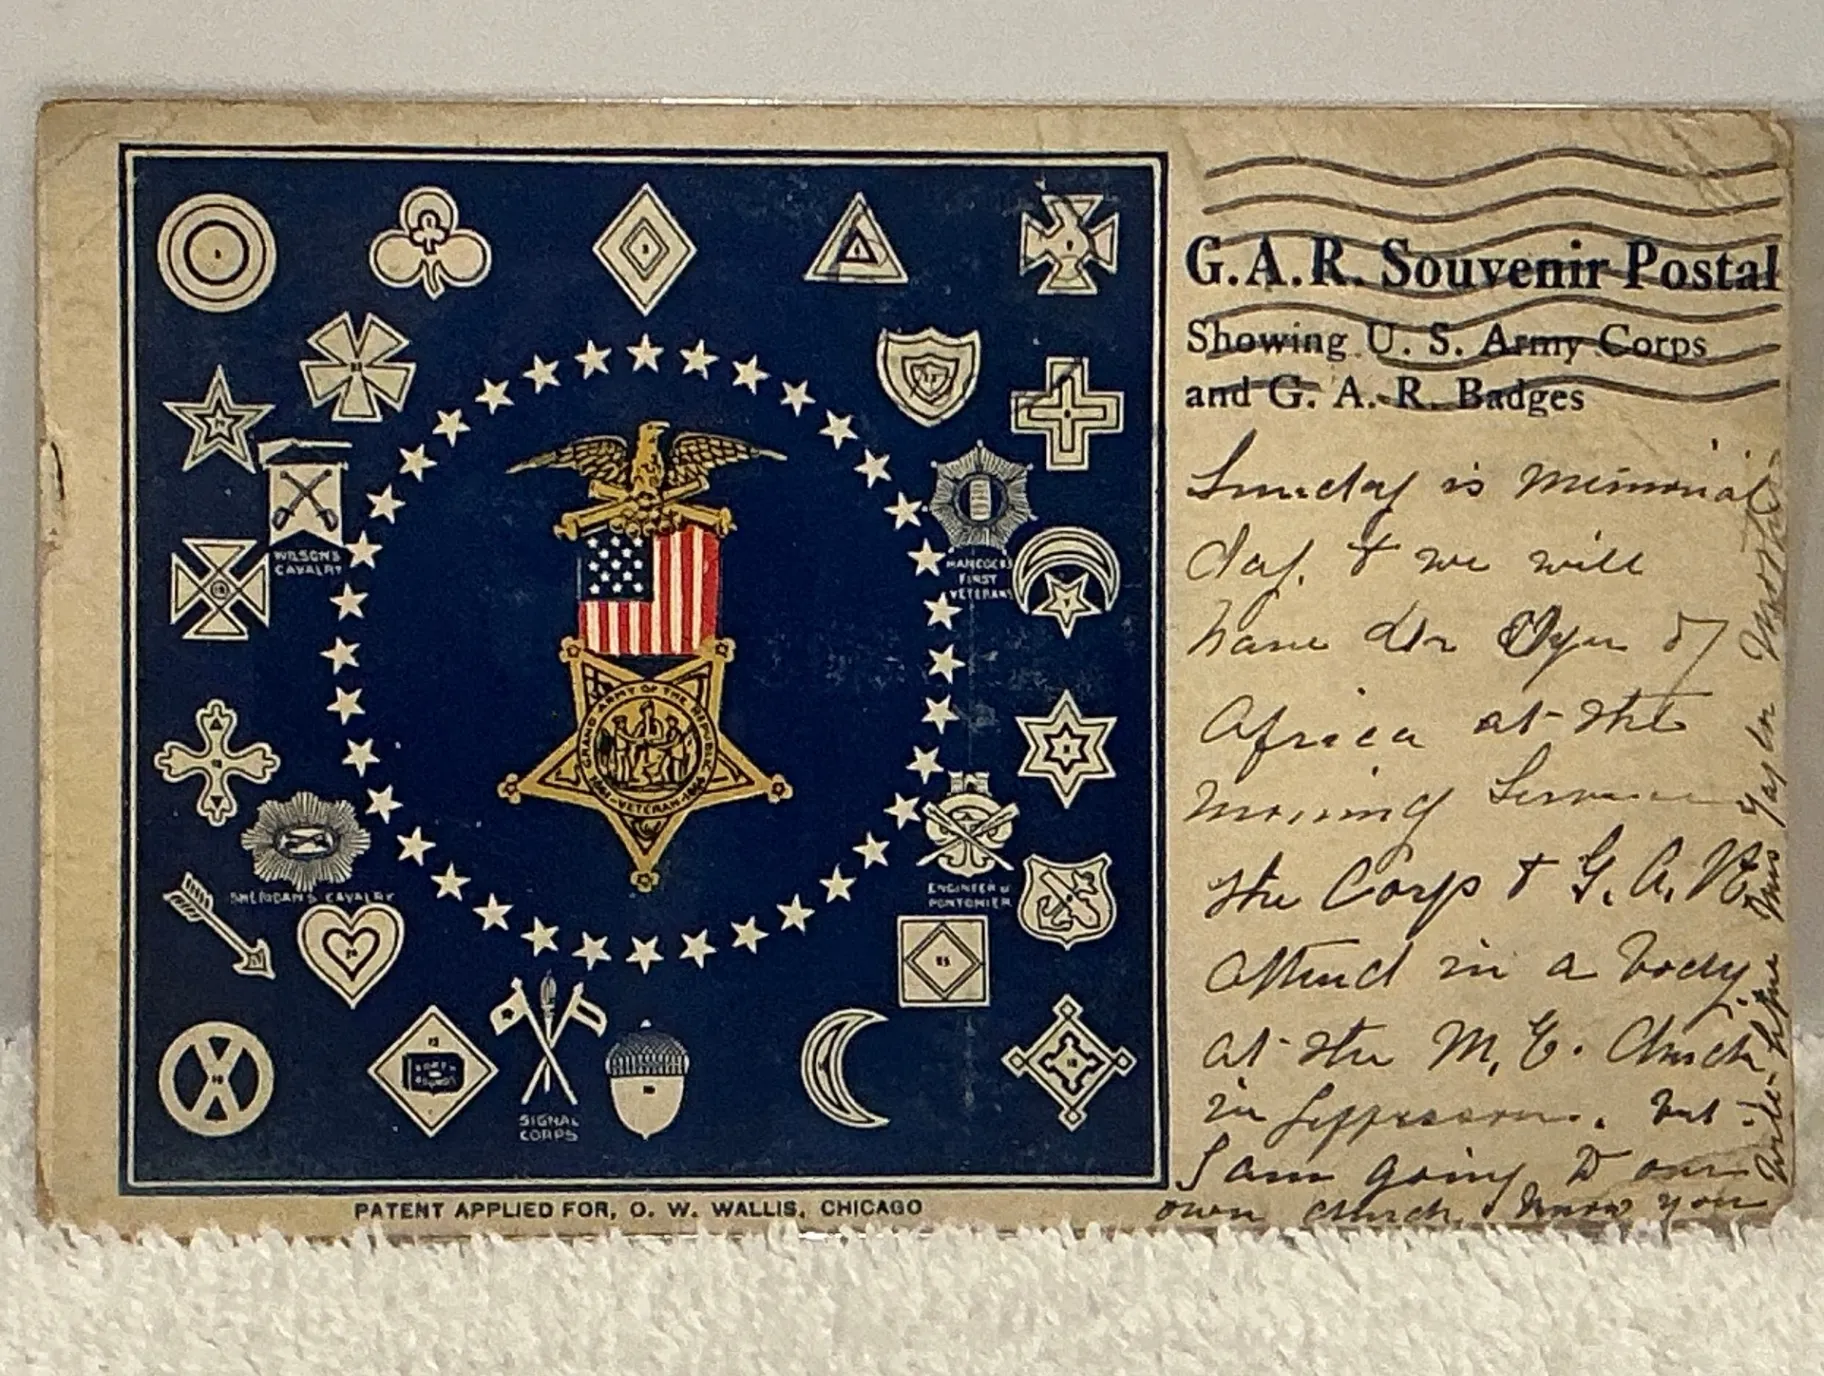 G.A.R. Souvenir Postal
Showing U. S. Army Corps
and G. A. R. Badges
Sunday is Memorial
day. & we will
have Dr of
Africa at the
morning Service
the Corp & G. A. R.
attend in a body
at the M. E. Church
in Jefferson. but
I am going to our
own church. know you
will
WILSON'S
CAVALRY
HANCOCK'S
FIRST
VETERANS
GRAND ARMY OF THE REPUBLIC
1861-VETERAN-1866
SHERIDAN'S CAVALRY
ENGINEER &
PONTONIER
SIGNAL
CORPS
PATENT APPLIED FOR, O. W. WALLIS, CHICAGO